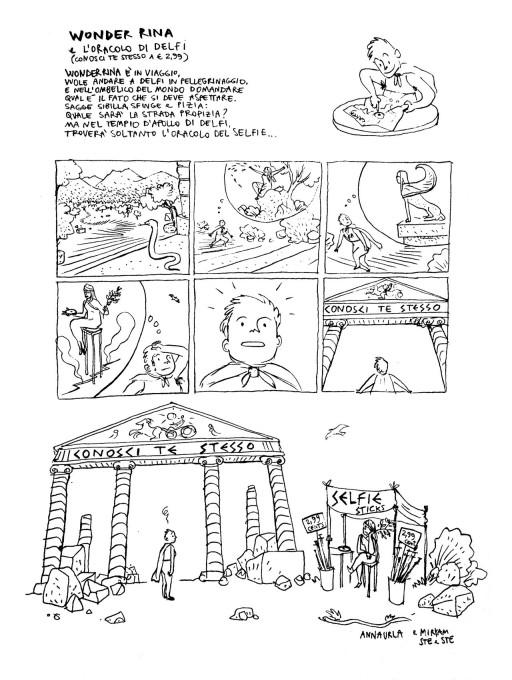 WONDER RINA
e L'ORACOLO DI DELFI
(CONOSCI TE STESSO A € 2,99)
WONDERRINA E' IN VIAGGIO,
VUOLE ANDARE A DELFI IN PELLEGRINAGGIO,
E NELL'OMBELICO DEL MONDO DOMANDARE
QUAL E' IL FATO CHE SI DEVE ASPETTARE.
SAGGE SIBILLA, SFINGE E PIZIA:
QUALE SARÀ LA STRADA PROPIZIA?
MA NEL TEMPIO D'APOLLO DI DELFI,
TROVERÀ SOLTANTO L'ORACOLO DEL SELFIE...
CONOSCI TE STESSO
CONOSCI TE STESSO
SELFIE
STICKS
2,99
2,99
ANNAURLA e MIRYAM
STE e STE